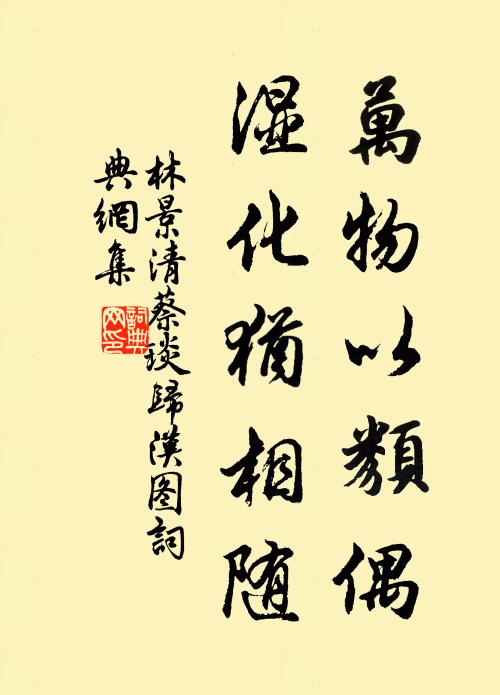 萬物以類偶
濕化猶相随
林景清蔡琰歸漢图詞
典網集
詞典
网印